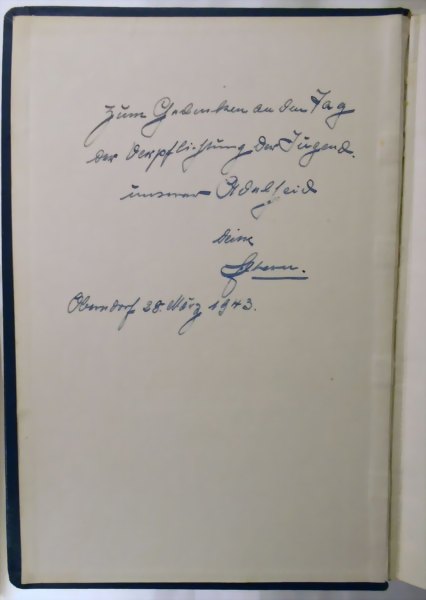 Zum Gedenken an den Tag
der Verpflichtung der Jugend.
unserer Adelheid
deine
Eltern.
Oberndorf 28. März 1943.